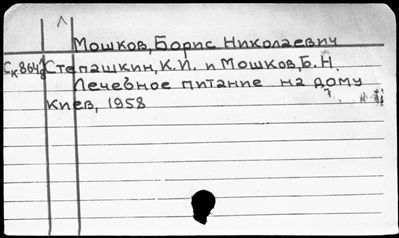 Мошков, Борис Николаевич
Степашкин, К.И. и Мошков, Б.Н.
Лечебное питание на дому
Киев, 1958